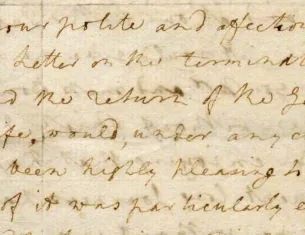 our polite and affectio
letter on the terminat
d the return of the G
ife, would, under any c
been highly pleasing to
of it was particularly e